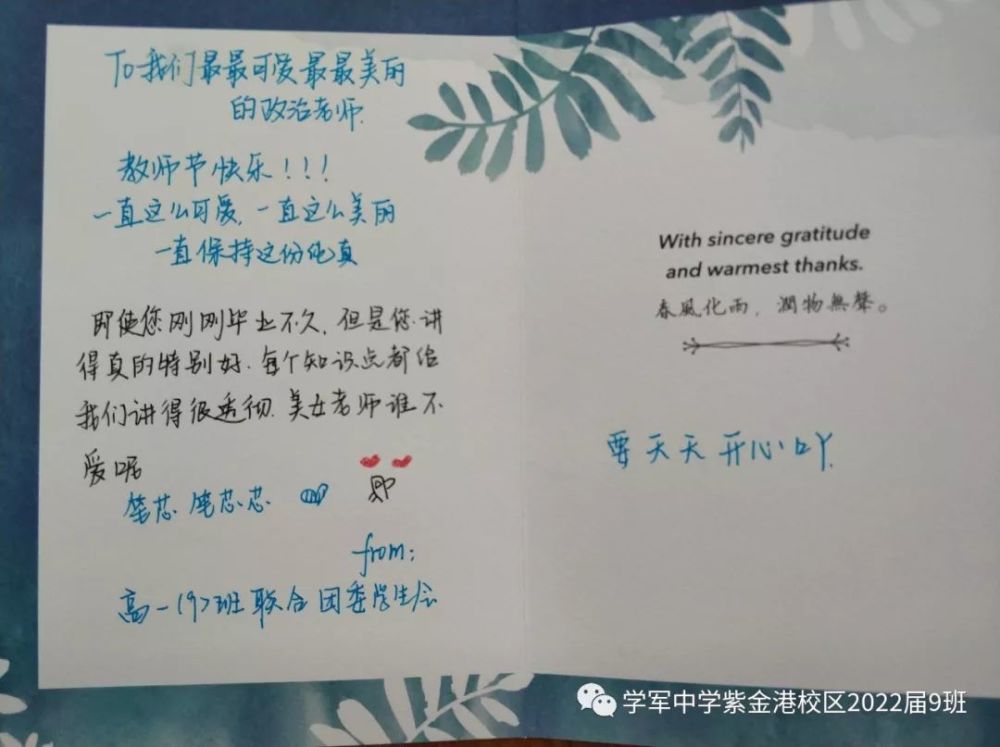 To我们最最可爱最最美丽
的政治老师.
教师节快乐!!!
一直这么可爱,一直这么美丽
一直保持这份纯真
即使您刚刚毕业不久,但是您讲
得真的特别好.每个知识点都给
我们讲得很透彻.美女老师谁不
爱呢
笔芯 笔芯芯
from:
高一(9)班联合团委学生会
With sincere gratitude
and warmest thanks.
春風化雨,潤物無聲。
要天天开心吖
学军中学紫金港校区2022届9班